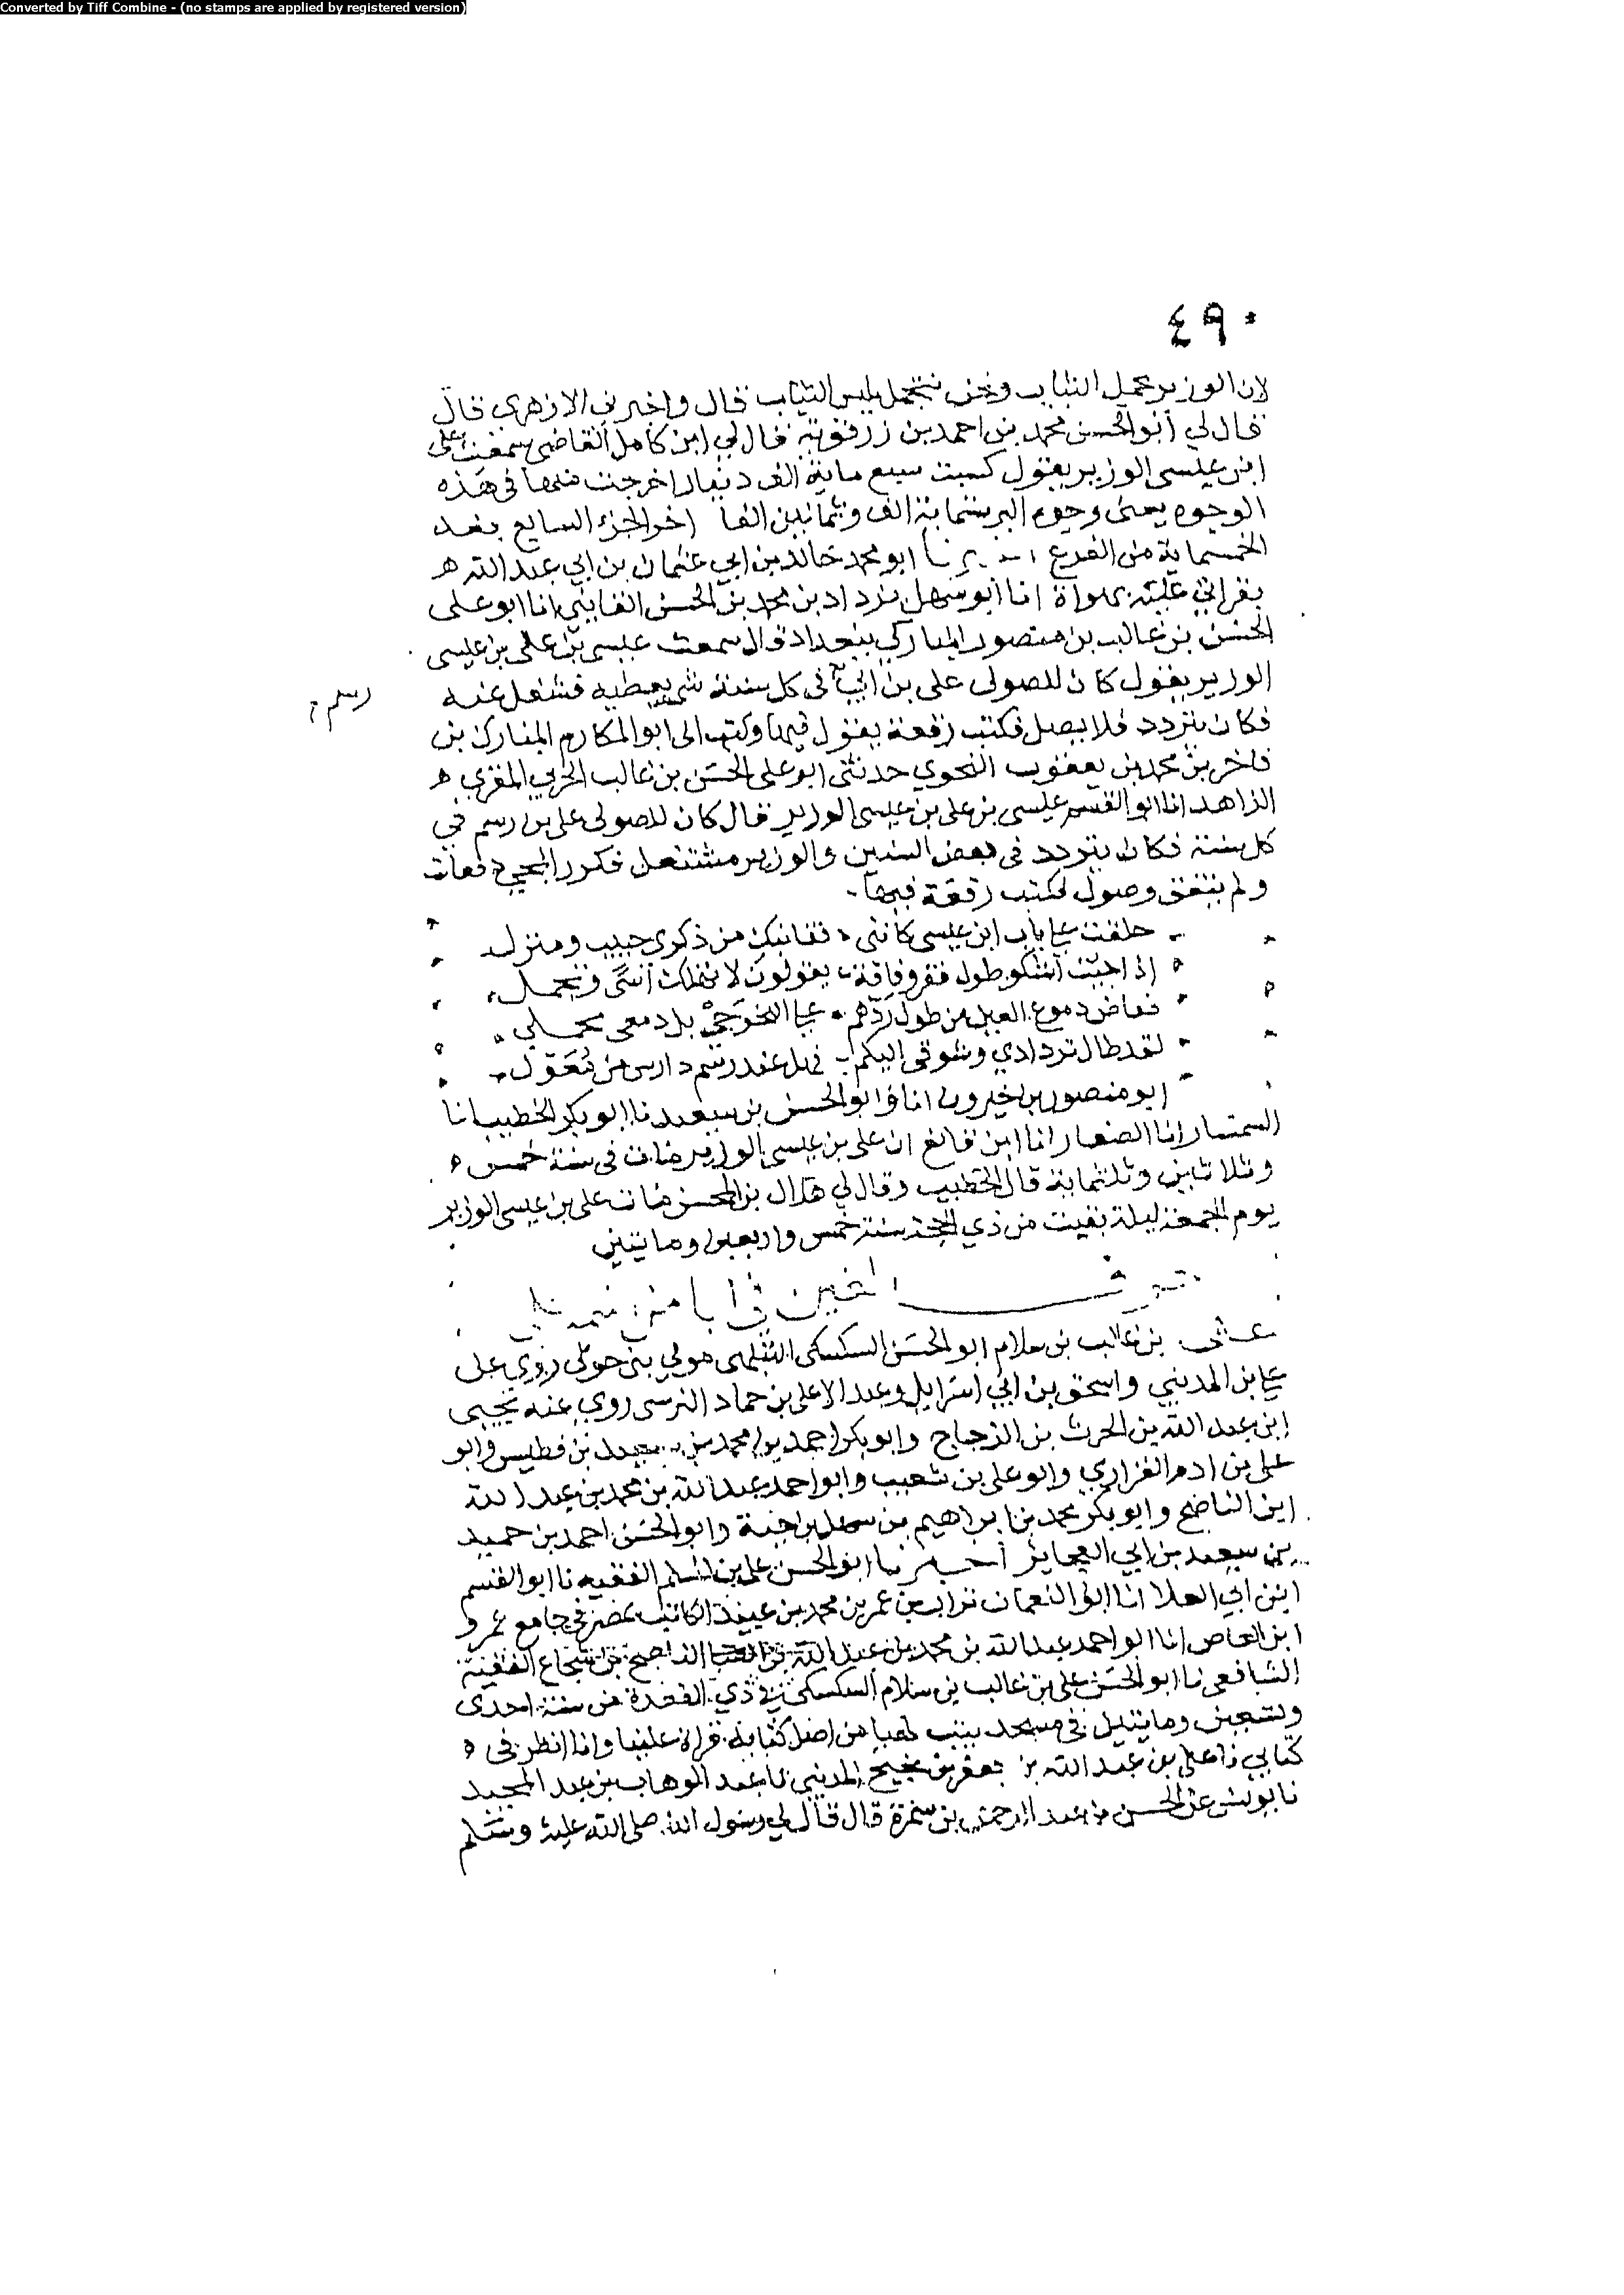 Converted by Tiff Combine - (no stamps are applied by registered version)
٤٩٠
لان الوزير يجمل الثياب ونحن نتجمل بلبس الثياب قال واخبرني الازهري قال
قال لي ابو الحسن محمد بن احمد بن زرقويه قال لي ابن كامل القاضي سمعت على
ابن عيسى الوزير يقول كسبت سبع ماية الف دينار اخرجت منها في هذه
الوجوه يعنى وجوه البر ستماية الف وثمانين الفا اخر الجزء السابع بعد
الخمسماية من الفرع ابو محمد خالد بن ابي عثمان بن ابي عبد الله
بقراتي عليه بهراة انا ابو سهل يزداد بن محمد بن الحسن انا ابو على
الحسن بن غالب بن منصور المباركي ببغداد قال سمعت عيسى بن على بن عيسى
الوزير يقول كان للصولى على بن ابي في كل سنة شي يعطيه فشغل عنه
رسم
فكان يتردد فلا يصل فكتب رقعة يقول فيها وكتب الى ابو المكارم المبارك بن
فاخر بن محمد بن يعقوب النحوي حدثنى ابو على الحسن بن غالب الحربي المقري
الزاهد انا ابو القسم عيسى بن على بن عيسى الوزير قال كان للصولى على بن رسم في
كل سنة فكان يتردد في بعض السنين والوزير مشتغل فكرر المجي دفعات
ولم يتفق وصول فكتب رقعة فيها
خلفت على باب ابن عيسى كاننى قفا نبك من ذكرى حبيب ومنزل
اذا جيت اشكو طول فقر وفاقة يقولون لا تهلك اسى وتجمل
ففاض دموع العين من طول ردهم على النحر حتى بل دمعى محملي
لقد طال تردادي وشوقي اليكم فهل عند رسم دارس من معول
ابو منصور بن خيرون انا وابو الحسن بن سعيد نا ابو بكر الخطيب انا
السمسار انا الصفار انا ابن قانع ان على بن عيسى الوزير مات في سنة خمس
وثلاثين وثلثماية قال الخطيب وقال لي هلال بن المحسن مات على بن عيسى الوزير
يوم الجمعة لليلة بقيت من ذي الحجة سنة خمس واربعين ومايتين
حرف الغين في ابا من اسمه على
على بن غالب بن سلام ابو الحسن السكسكى البتلهى مولى بنى حوى روى عن
على بن المديني واسحق بن ابي اسرايل وعبد الاعلى بن حماد النرسى روى عنه يحيى
ابن عبد الله بن الحرث بن الزجاج وابو بكر احمد بن محمد بن سعيد بن فطيس وابو
على بن ادم الفزاري وابو على بن شعيب وابو احمد عبد الله بن محمد بن عبد الله
ابن الناصح وابو بكر محمد بن ابراهيم بن سهل بن حية وابو الحسن احمد بن حميد
بن سعيد بن ابي العجايز اخبرنا ابو الحسن على بن المسلم الفقيه نا ابو القسم
ابن ابي العلا انا ابو النعمان تراب بن عمر بن محمد بن عبيد الكاتب بمصر في جامع عمرو
ابن العاص انا ابو احمد عبد الله بن محمد بن عبد الله بن الناصح بن شجاع الفقيه
الشافعى نا ابو الحسن على بن غالب بن سلام السكسكى في ذي القعدة من سنة احدى
وتسعين ومايتين في مسجد ببيت لهيا من اصل كتابه قراة علينا وانا انظر في
كتابي نا على بن عبد الله بن جعفر بن نجيح المديني نا عبد الوهاب بن عبد المجيد
نا يونس عن الحسن نا عبد الرحمن بن سمرة قال قال لي رسول الله صلى الله عليه وسلم